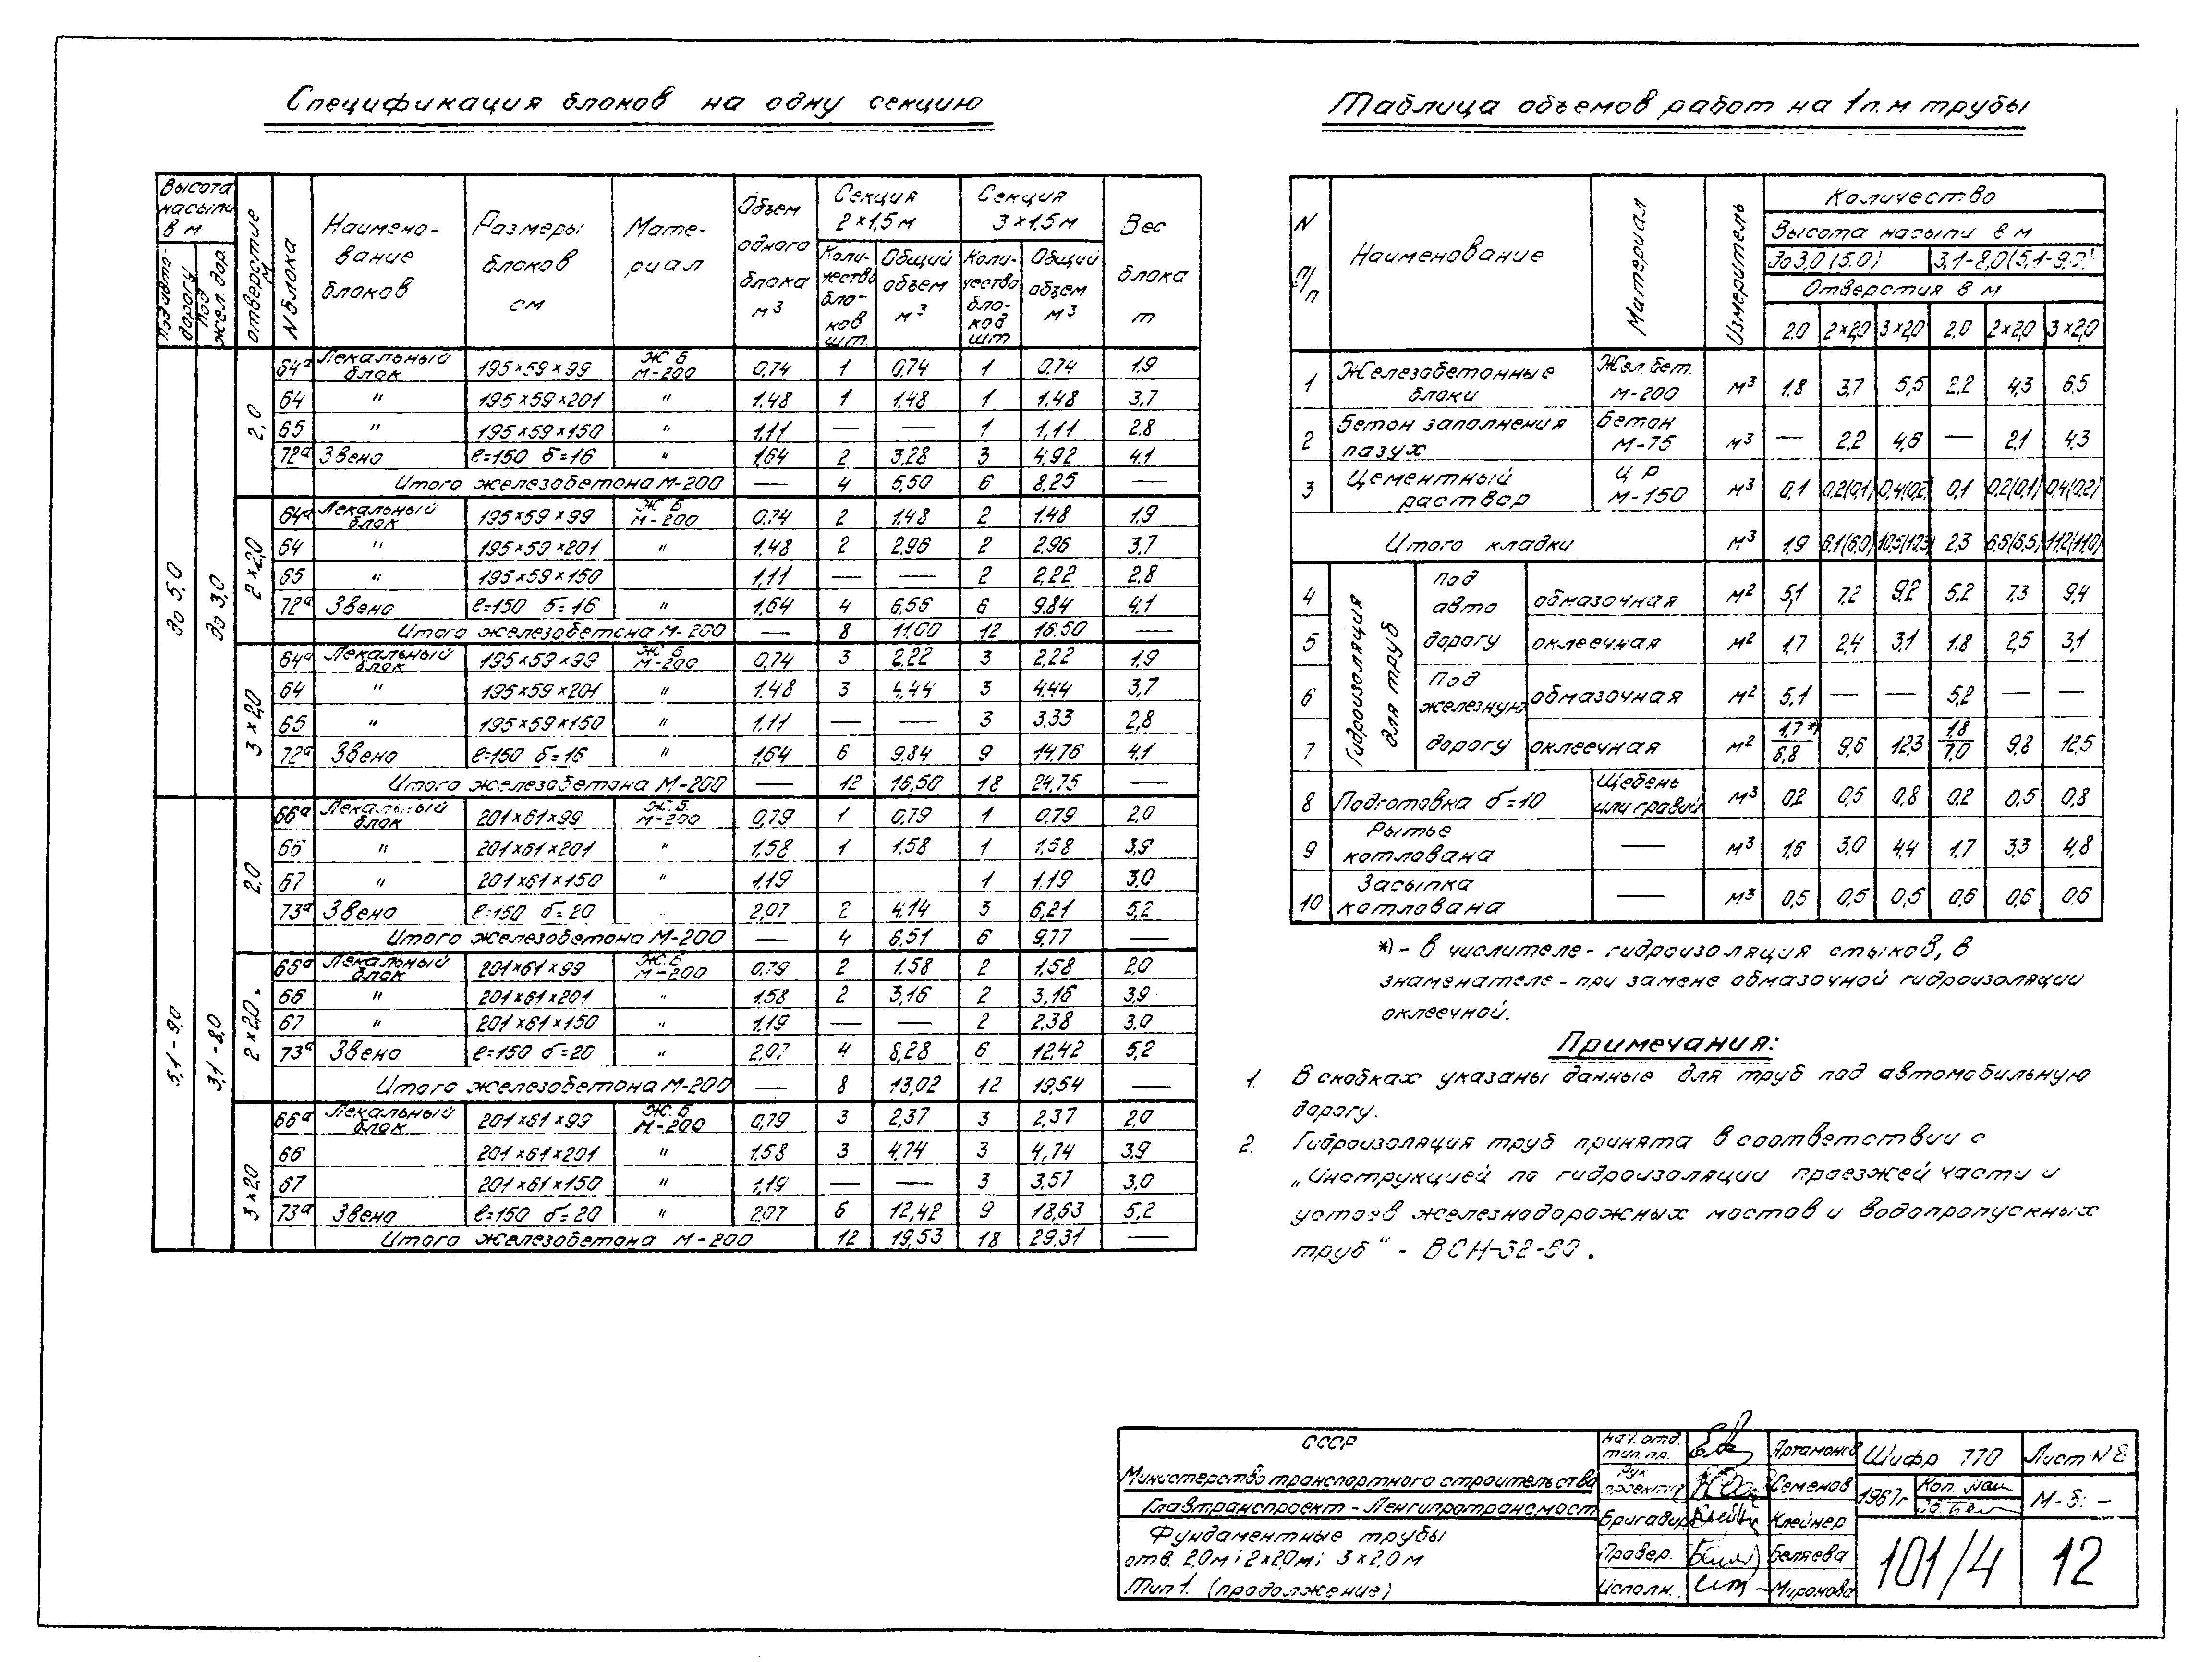 Спецификация блоков на одну секцию
Высота насыпи в м
Под авто-дорогу
Под жел.дор.
отверстие м
N блока
Наимено-вание блоков
Размеры блоков см
Мате-риал
Объем одного блока м³
Секция 2×1,5м
Количество бло-ков шт
Общий объем м³
Секция 3×1,5м
Коли-чество бло-ков шт
Общий объем м³
Вес блока т
до 5,0
до 3,0
2,0
64ª Лекальный блок 195×59×99 Ж Б М-200 0,74 1 0,74 1 0,74 1,9
64 " 195×59×201 " 1,48 1 1,48 1 1.48 3,7
65 " 195×59×150 " 1,11 — — 1 1,11 2,8
72ª Звено ℓ=150 δ=16 " 1,64 2 3,28 3 4,92 4,1
Итого железобетона М-200 — 4 5,50 6 8,25
2×2,0
64ª Лекальный блок 195×59×99 Ж Б М-200 0,74 2 1,48 2 1,48 1,9
64 " 195×59×201 " 1,48 2 2,96 2 2,96 3,7
65 " 195×59×150 1,11 — — 2 2,22 2,8
72ª Звено ℓ=150 δ=16 " 1,64 4 6,56 6 9,84 4,1
Итого железобетона М-200 — 8 11,00 12 16.50 —
3×2,0
64ª Лекальный блок 195×59×99 Ж Б М-200 0,74 3 2,22 3 2,22 1,9
64 " 195×59×201 " 1.48 3 4,44 3 4,44 3,7
65 " 195×59×150 " 1,11 — — 3 3,33 2,8
72ª Звено ℓ=150 δ=16 " 1,64 6 9,84 9 14,76 4,1
Итого железобетона М-200 — 12 16,50 18 24,75 —
5,1-9,0
3,1-8,0
2,0
66ª Лекальный блок 201×61×99 Ж.Б. М-200 0,79 1 0,79 1 0,79 2,0
66 " 201×61×201 " 1,58 1 1,58 1 1,58 3,9
67 " 201×61×150 " 1,19 1 1,19 3,0
73ª Звено ℓ=150 δ=20 " 2,07 2 4,14 3 6,21 5,2
Итого железобетона М-200 — 4 6,51 6 9,77 —
2×2,0
65ª Лекальный блок 201×61×99 Ж.Б. М-200 0,79 2 1,58 2 1,58 2,0
66 " 201×61×201 " 1,58 2 3,16 2 3,16 3,9
67 " 201×61×150 " 1,19 — — 2 2,38 3,0
73ª Звено ℓ=150 δ=20 " 2,07 4 8,28 6 12,42 5,2
Итого железобетона М-200 — 8 13,02 12 19,54 —
3×2,0
66ª Лекальный блок 201×61×99 Ж.Б М-200 0,79 3 2,37 3 2,37 2,0
66 201×61×201 " 1,58 3 4,74 3 4,74 3,9
67 201×61×150 " 1,19 — — 3 3,57 3,0
73ª Звено ℓ=150 δ=20 " 2,07 6 12,42 9 18,63 5,2
Итого железобетона М-200 12 19,53 18 29,31 —
Таблица объемов работ на 1п.м трубы
N п/п
Наименование
Материал
Измеритель
Количество
Высота насыпи в м
До 3,0 (5.0) 3,1-8,0 (5,1-9,0)
Отверстия в м
2.0 2×2,0 3×2,0 2,0 2×2,0 3×2,0
1 Железобетонные блоки Жел.бет. М-200 м³ 1,8 3,7 5,5 2.2 4,3 6,5
2 Бетон заполнения пазух Бетон М-75 м³ — 2,2 4,6 — 2,1 4,3
3 Цементный раствор ЦР М-150 м³ 0,1 0,2(0,1) 0,4(0,2) 0,1 0,2(0,1) 0,4(0,2)
Итого кладки м³ 1,9 6,1(6,0) 10,5(10,3) 2,3 6,6(6,5) 11,2(11,0)
Гидроизоляция для труб
под авто дорогу
4 обмазочная м² 5,1 7,2 9,2 5,2 7,3 9,4
5 оклеечная м² 1,7 2,4 3,1 1.8 2,5 3,1
Под железную дорогу
6 обмазочная м² 5,1 — — 5,2 — —
7 оклеечная м² 1,7*)/6,8 9,6 12,3 1,8/7,0 9,8 12,5
8 Подготовка δ=10 Щебень или гравий м³ 0,2 0,5 0,8 0.2 0,5 0,8
9 Рытье котлована — м³ 1,6 3,0 4,4 1,7 3,3 4,8
10 Засыпка котлована — м³ 0,5 0,5 0,5 0,6 0,6 0,6
*)- в числителе- гидроизоляция стыков, в
знаменателе - при замене обмазочной гидроизоляции
оклеечной.
Примечания:
1. В скобках указаны данные для труб под автомобильную
дорогу.
2. Гидроизоляция труб принята в соответствии с
„Инструкцией по гидроизоляции проезжей части и
устоев железнодорожных мостов и водопропускных
труб" - ВСН-32-60.
СССР
Министерство транспортного строительства
Главтранспроект - Ленгипротрансмост
Фундаментные трубы
отв. 2,0м; 2×2,0м; 3×2,0м
Тип 1. (продолжение)
Нач. отд. тип. пр. Артамонов
Рук проекта Семенов
Бригадир Клейнер
Провер. Беляева
Исполн. Миронова
Шифр 770
Лист N 8
1967г
Коп.
М-б: -
101/4
12